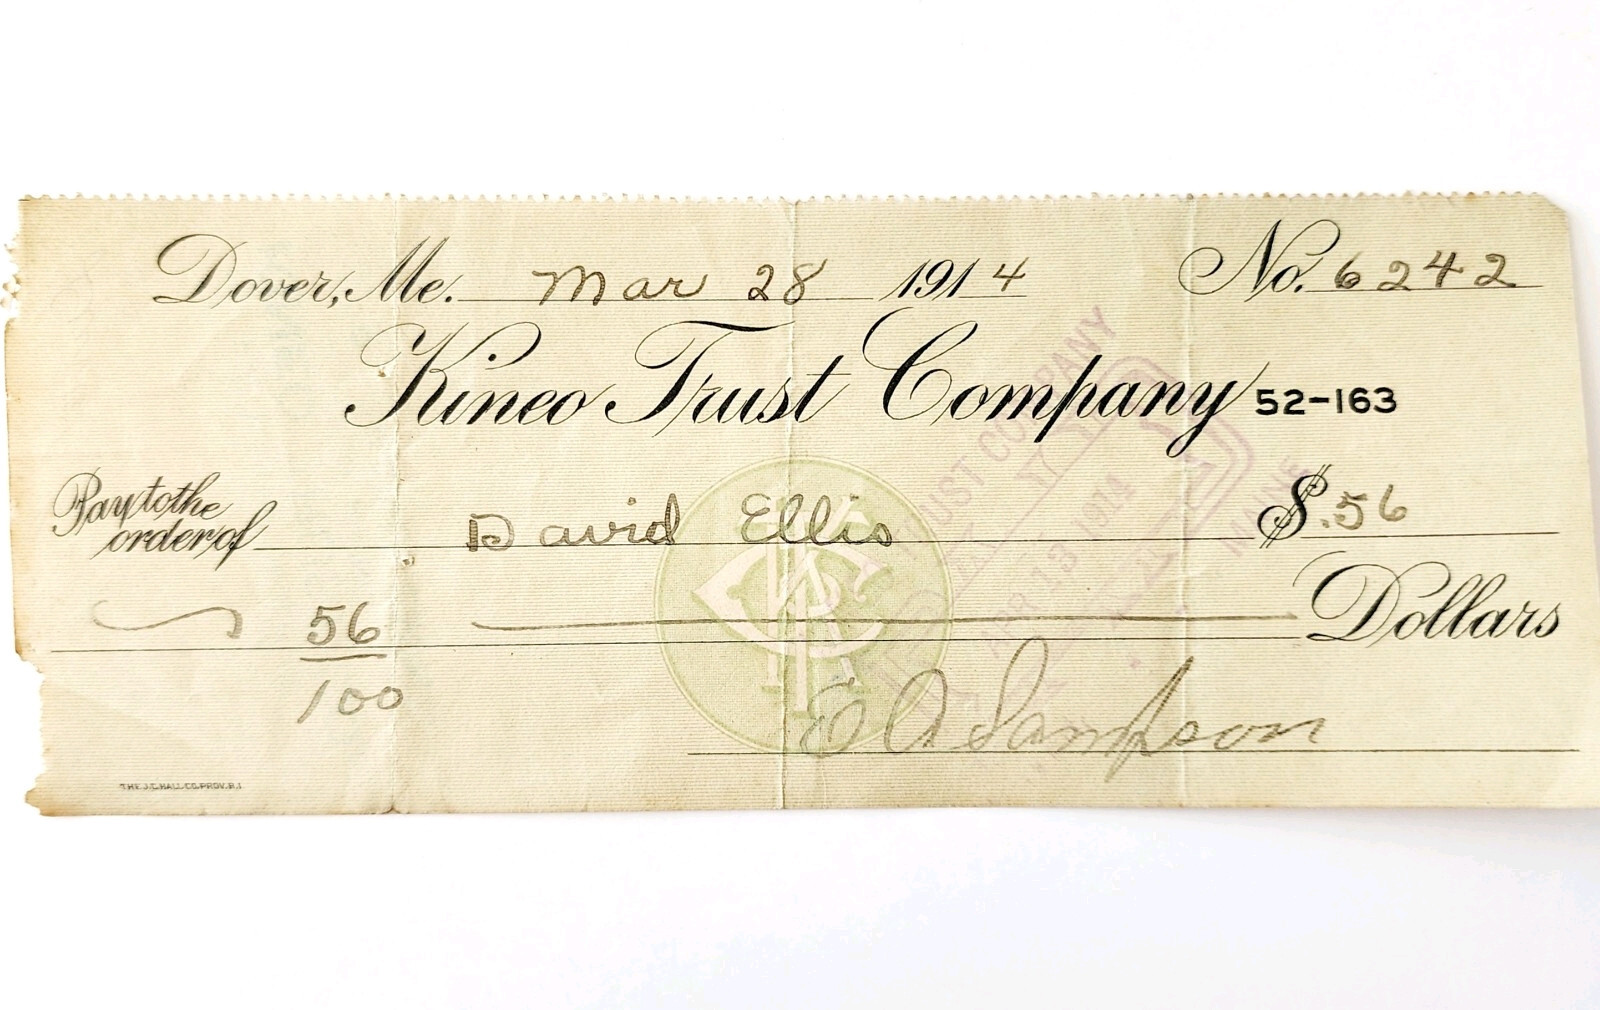 Dover, Me. Mar 28 1914 No. 6242
Kineo Trust Company 52-163
Pay to the order of David Ellis $ .56
56/100 Dollars
E A Sampson
THE J.C. HALL CO. PROV. R.I.
TRUST COMPANY
APR 13 1914
MAINE